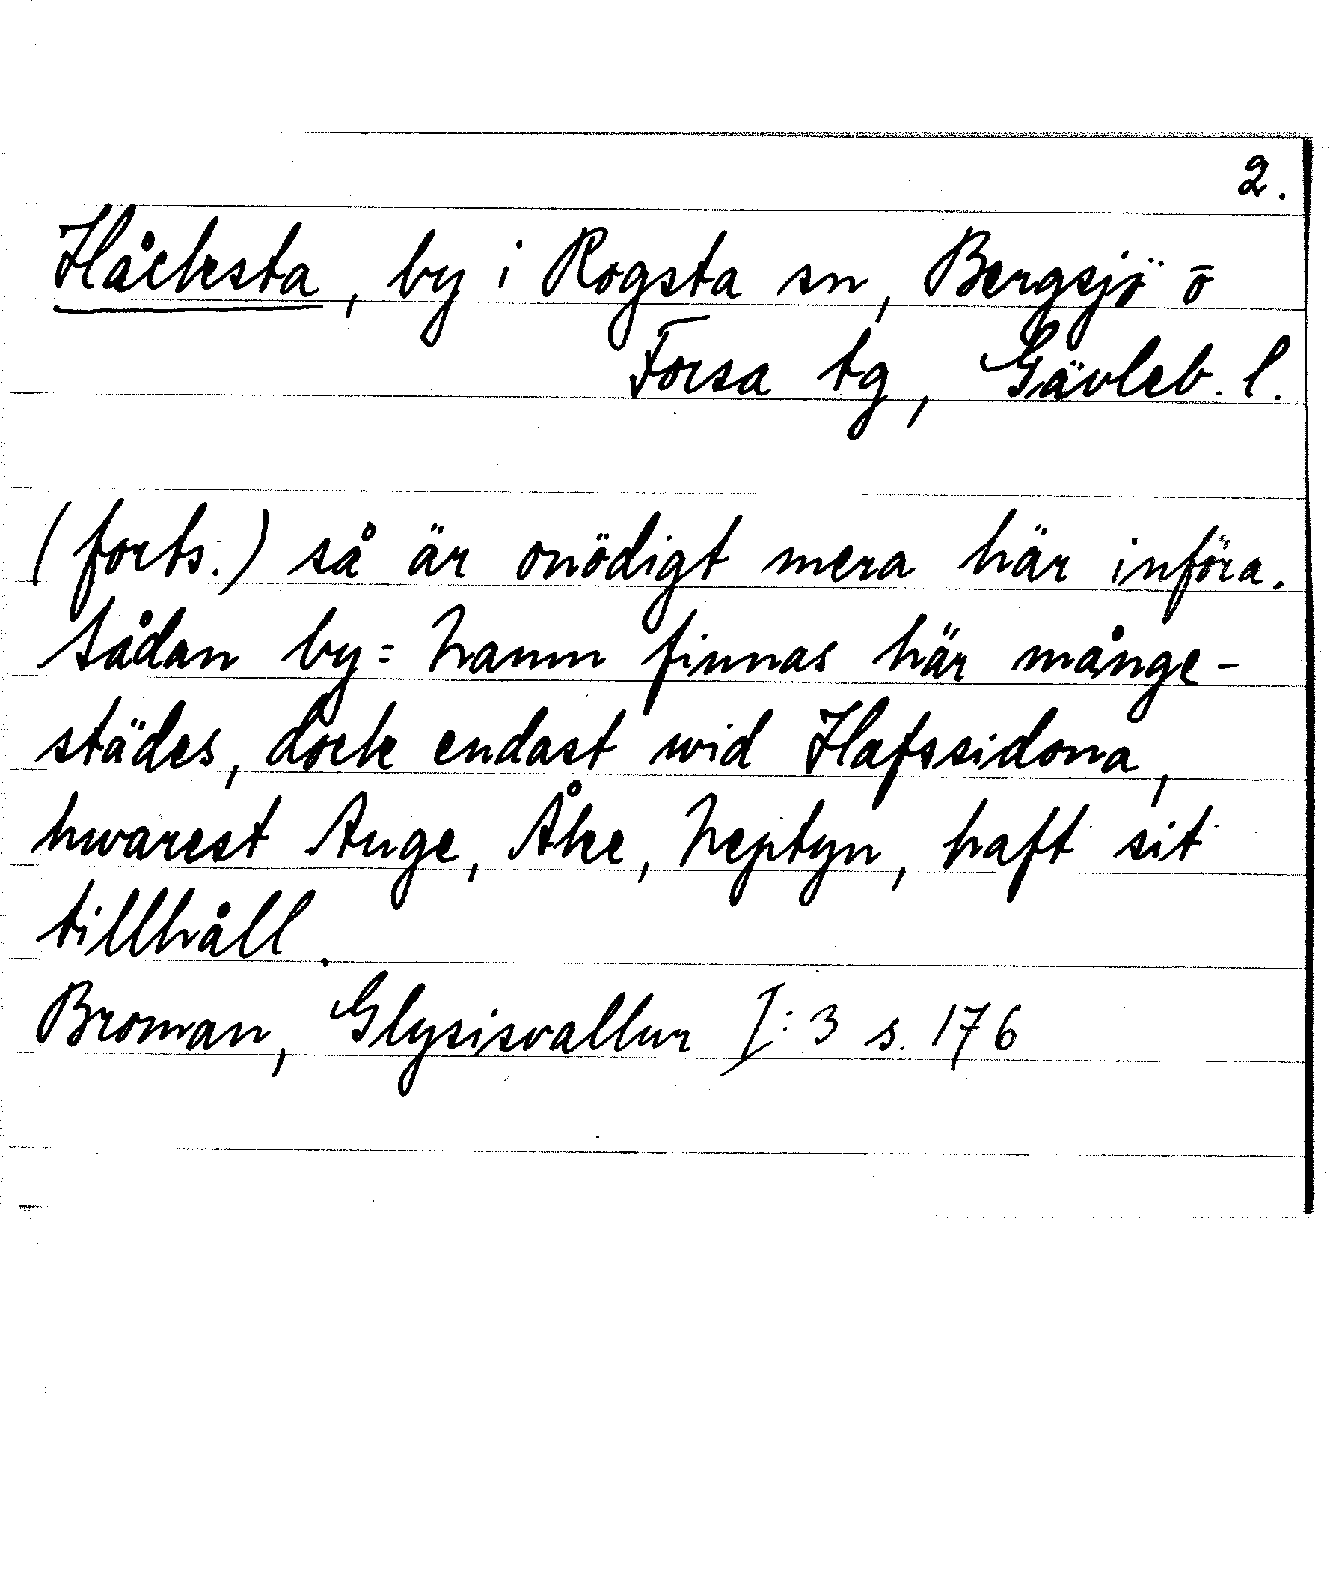 2.
Håcksta, by i Rogsta sn, Bergsjö o
Forsa tg, Gävleb. l.
(forts.) så är onödigt mera här införa.
Sådan by= Namn finnas här månge-
städes, dock endast wid Hafssidona,
hwarest Auge, Åke, Neptyn, haft sit
tillhåll.
Broman, Glysisvallur I:3 s. 176